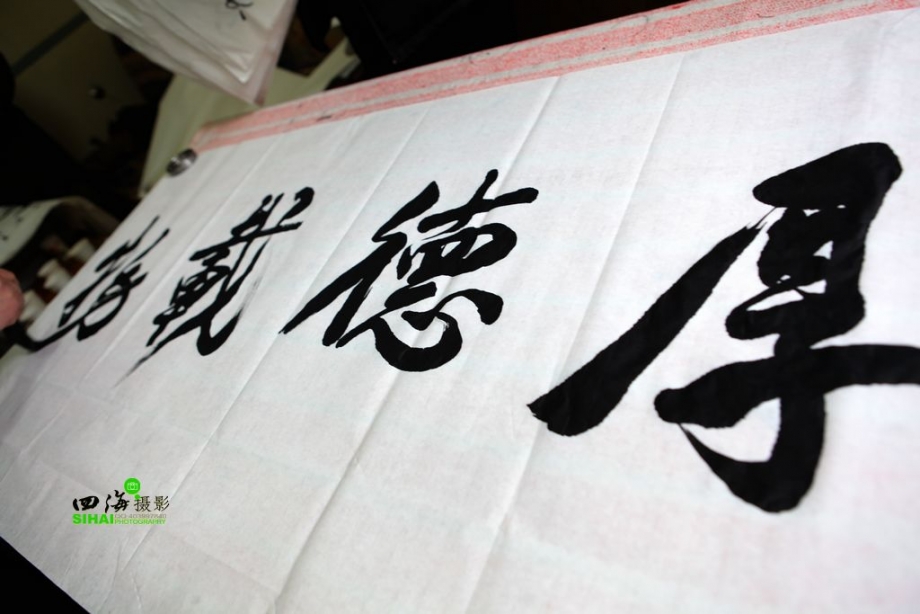 厚德載
四海摄影
SIHAI PHOTOGRAPHY